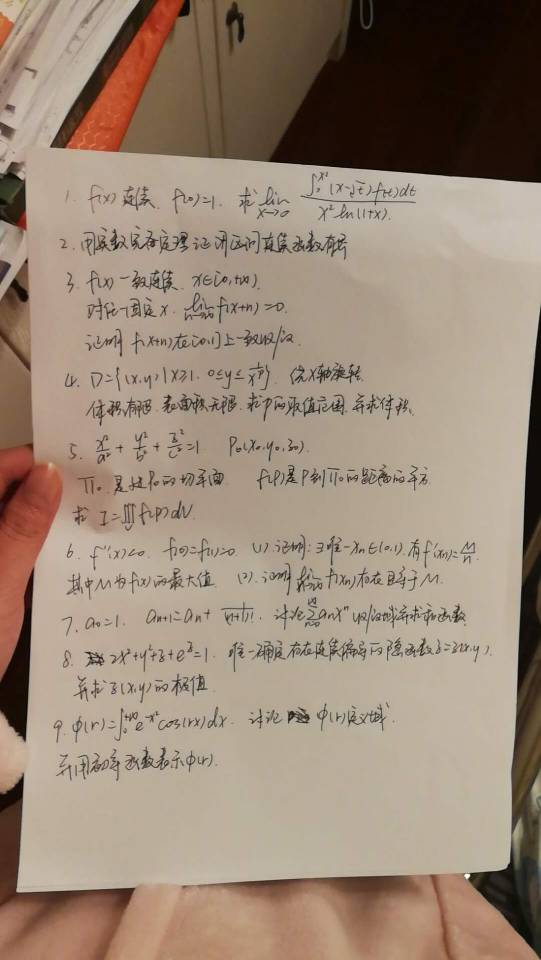 1. f(x) 连续. f(0)=1. 求 lim_{x→0} \frac{∫_0^{x^2} (x-√t) f(t)dt}{x^2 ln(1+x)}.
2. 用实数完备定理证闭区间连续函数有界
3. f(x) 一致连续. x∈[0,+∞).
对任一固定x. lim_{n→∞} f(x+n)=0.
证明 f(x+n)在[0,1]上一致收敛.
4. D={(x,y)|x≥1. 0≤y≤\frac{1}{x^p}} 绕x轴旋转
体积有限. 表面积无限. 求p的取值范围. 并求体积.
5. \frac{x^2}{a^2}+\frac{y^2}{b^2}+\frac{z^2}{c^2}=1 P_0(x_0,y_0,z_0).
Π_0 是过P_0的切平面. f(P)是P到Π_0的距离的平方.
求 I=∭f(P)dV
6. f''(x)<0. f(0)=f(1)=0 (1).证明:∃唯一x_n∈(0,1).有f'(x_n)=\frac{M}{n}.
其中M为f(x)的最大值. (2).证明 lim f(x_n)存在且等于M.
7. a_0=1. a_{n+1}=a_n+\frac{1}{(n+1)!}. 讨论∑a_nx^n收敛域并求和函数.
8. 2x^2+y^2+z+e^z=1. 唯一确定存在连续偏导的隐函数z=z(x,y).
并求z(x,y)的极值
9. φ(r)=∫_0^{+∞}e^{-x^2}cos(rx)dx. 讨论 φ(r)定义域.
并用初等函数表示φ(r).